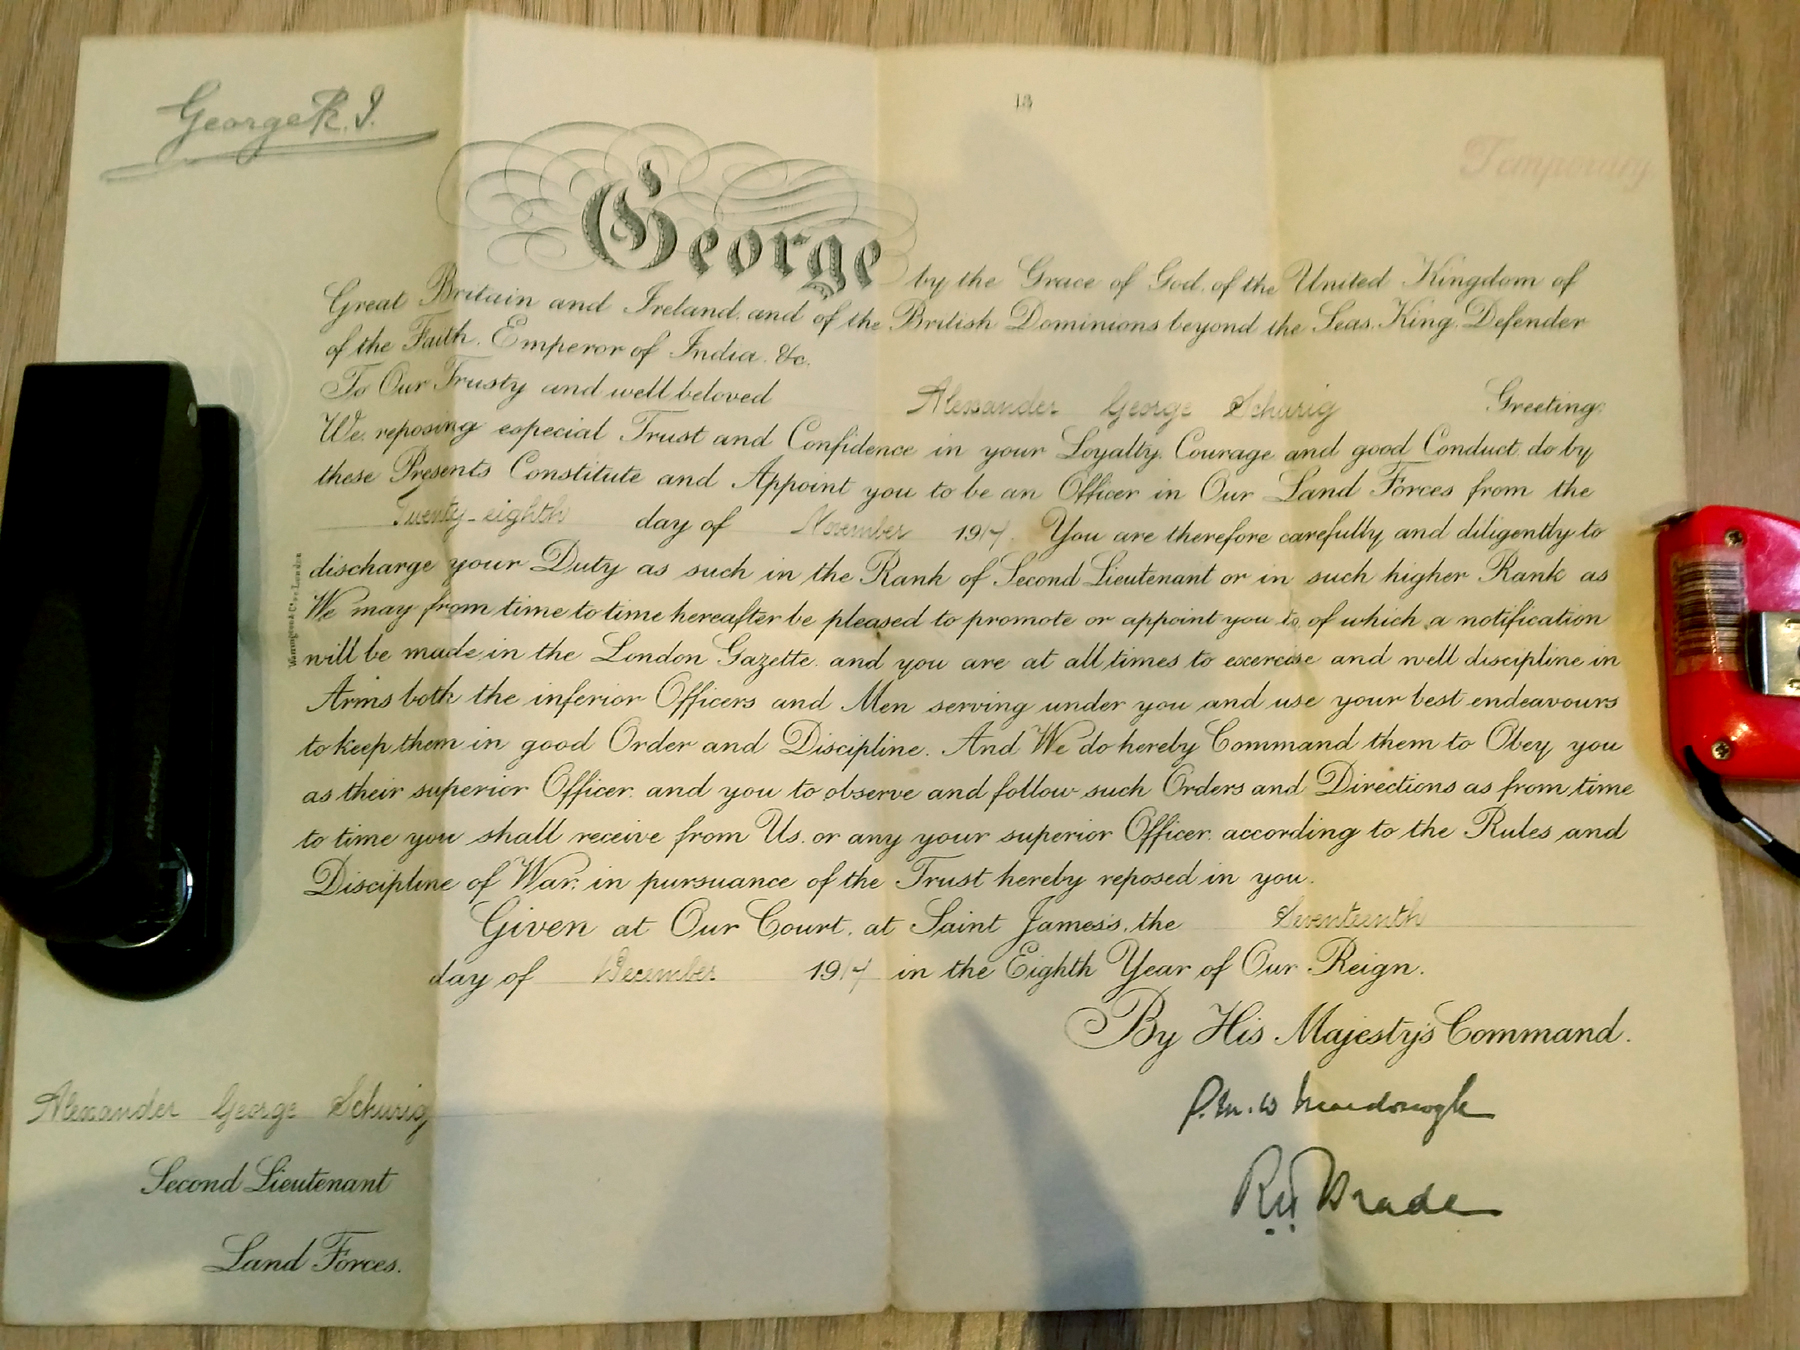 George R.I.
13
Temporary
George by the Grace of God, of the United Kingdom of
Great Britain and Ireland, and of the British Dominions beyond the Seas, King, Defender
of the Faith, Emperor of India, &c.
To Our Trusty and well beloved Alexander George Schurig Greeting:
We, reposing especial Trust and Confidence in your Loyalty, Courage and good Conduct, do by
these Presents Constitute and Appoint you to be an Officer in Our Land Forces from the
Twenty-eighth day of November 1917. You are therefore carefully and diligently to
discharge your Duty as such in the Rank of Second Lieutenant or in such higher Rank as
We may from time to time hereafter be pleased to promote or appoint you to, of which a notification
will be made in the London Gazette, and you are at all times to exercise and well discipline in
Arms both the inferior Officers and Men serving under you and use your best endeavours
to keep them in good Order and Discipline. And We do hereby Command them to Obey you
as their superior Officer, and you to observe and follow such Orders and Directions as from time
to time you shall receive from Us, or any your superior Officer, according to the Rules and
Discipline of War, in pursuance of the Trust hereby reposed in you.
Given at Our Court, at Saint James's, the Seventeenth
day of December 1917 in the Eighth Year of Our Reign.
By His Majesty's Command.
Alexander George Schurig
Second Lieutenant
Land Forces.
R H Brade